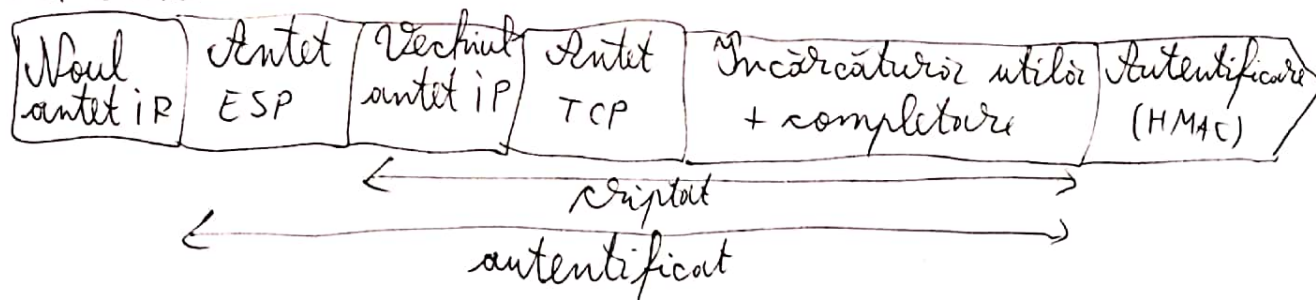 Noul antet IP
Antet ESP
Vechiul antet IP
Antet TCP
Încărcătură utilă + completare
Autentificare (HMAC)
criptat
autentificat